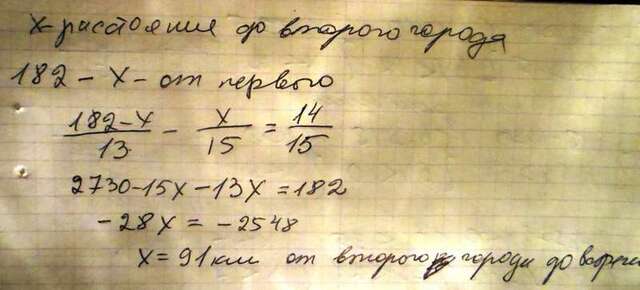 x-расстояние до второго города
182 - x - от первого
(182-x)/13 - x/15 = 14/15
2730-15x-13x=182
-28x = -2548
x=91 км от второго города до встречи